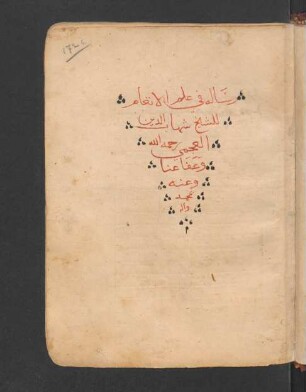 ١٢٤٤
رسالة في علم الانغام
للشيخ شهاب الدين
العجمي رحمه الله
وعفا عنا
وعنه
بمحمد
واله
م